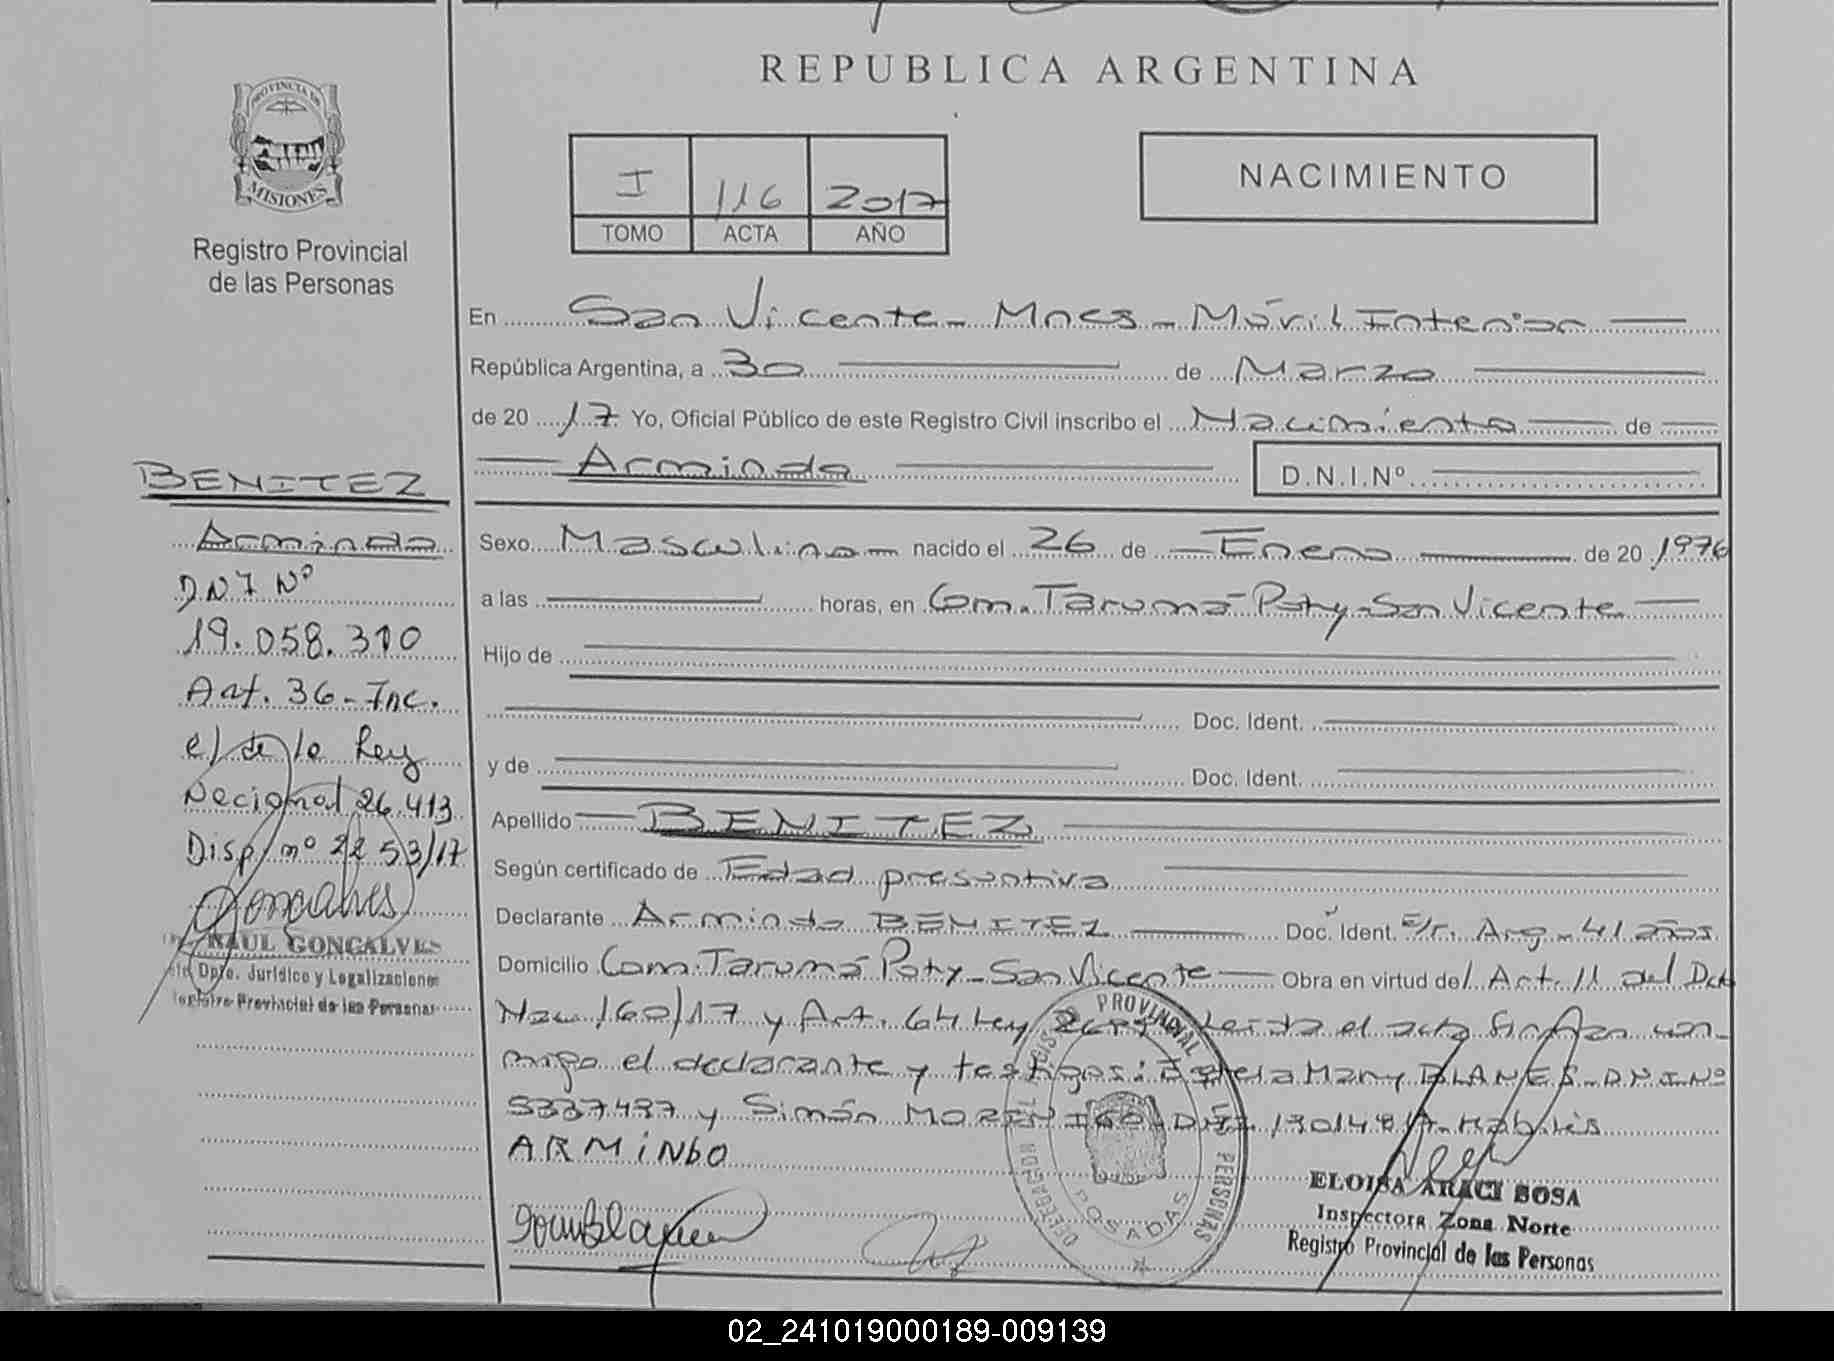 REPUBLICA ARGENTINA
PROVINCIA DE
MISIONES
Registro Provincial
de las Personas
I 116 2017
TOMO ACTA AÑO
NACIMIENTO
En San Vicente - Mnes - Móvil Interior
República Argentina, a 30 de Marzo
de 20 17 Yo, Oficial Público de este Registro Civil inscribo el Nacimiento de
Armindo D.N.I.Nº
BENITEZ
Armindo
DNI Nº
19.058.310
Art. 36 - Inc.
c) de la Ley
Nacional 26.413
Disp. nº 2253/17
Goncalves
RAUL GONCALVES
Dpto. Jurídico y Legalizaciones
Registro Provincial de las Personas
Sexo Masculino nacido el 26 de Enero de 20 1976
a las horas, en Com. Tarumá Poty - San Vicente
Hijo de
Doc. Ident.
y de Doc. Ident.
Apellido BENITEZ
Según certificado de Edad presuntiva
Declarante Armindo BENITEZ Doc. Ident. S/r. Arg - 41 años
Domicilio Com. Tarumá Poty - San Vicente Obra en virtud del Art. 11 del Dcto
Nac 160/17 y Art. 64 Ley Leída el acta firman con-
migo el declarante y testigos: Estela Mary BLANES - D.N.I.Nº
5337497 y Simón MORINIGO Hábiles
ARMiNDO
REGISTRO PROVINCIAL DE LAS PERSONAS
DELEGACION
POSADAS
ELOISA ARACI SOSA
Inspectora Zona Norte
Registro Provincial de las Personas
02_241019000189-009139